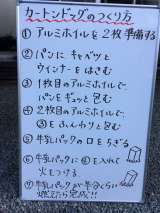 カートンドッグのつくり方
① アルミホイルを2枚準備する
② パンにキャベツと
ウインナーをはさむ
③ 1枚目のアルミホイルで
パンをギュッと包む
④ 2枚目のアルミホイルで
③をふんわりと包む
⑤ 牛乳パックの口をちぎる
⑥ 牛乳パックに④を入れて
火をつける
⑦ 牛乳パックが半分くらい
燃えたら完成!!